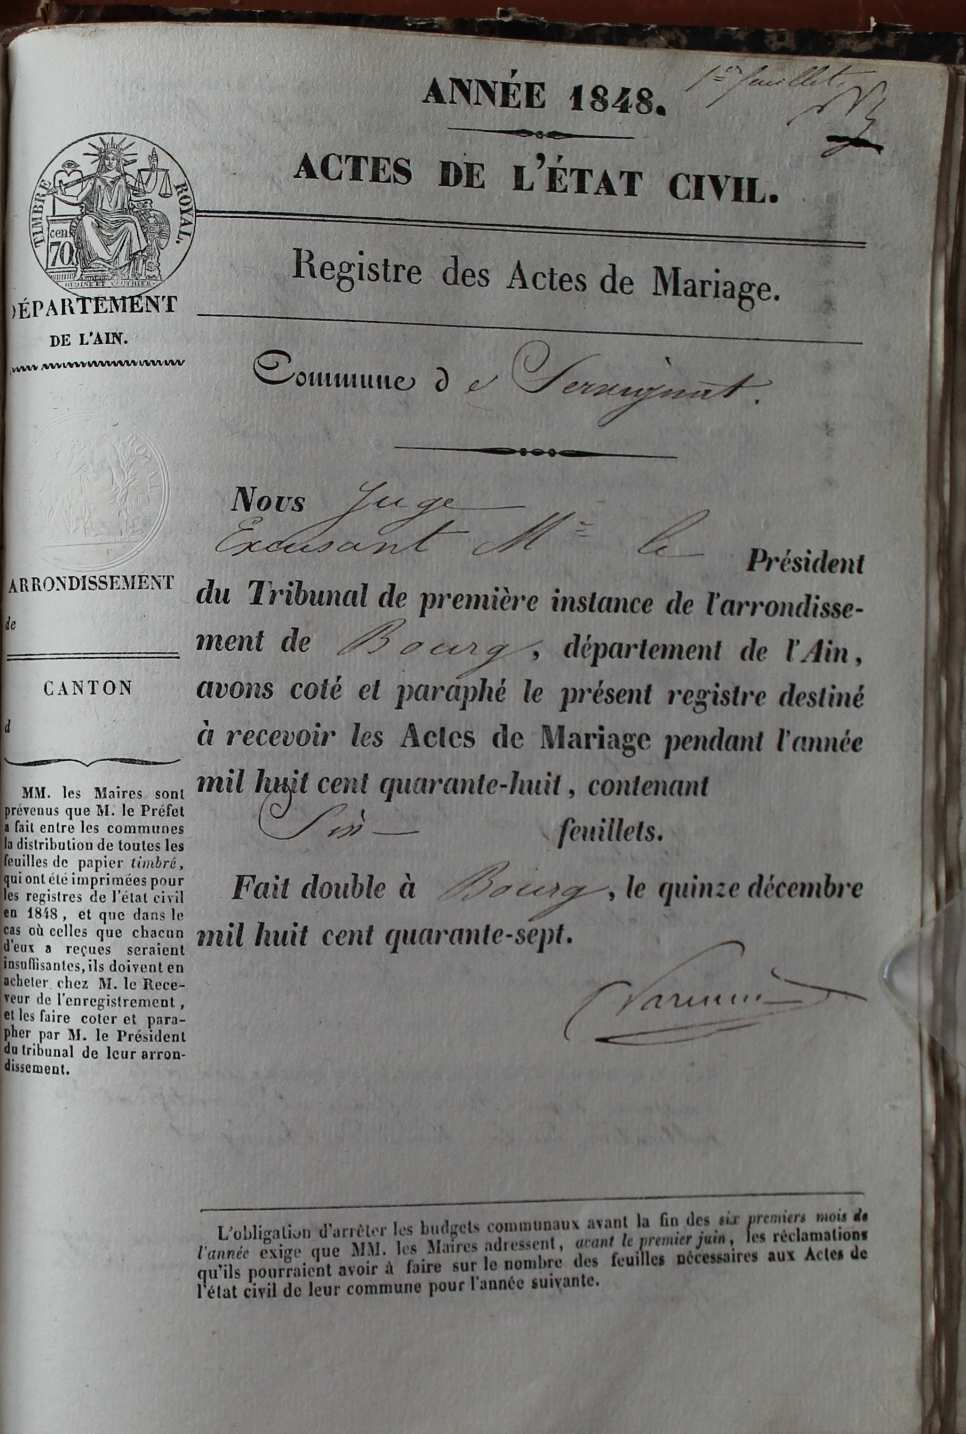 1er feuillet
ANNÉE 1848.
ACTES DE L'ÉTAT CIVIL.
TIMBRE ROYAL.
cen
70
DÉPARTEMENT
DE L'AIN.
Registre des Actes de Mariage.
Commune de Servignat.
Nous Juge
Excusant Mr le Président
du Tribunal de première instance de l'arrondisse-
ment de Bourg, département de l'Ain,
avons coté et paraphé le présent registre destiné
à recevoir les Actes de Mariage pendant l'année
mil huit cent quarante-huit, contenant
Six feuillets.
Fait double à Bourg, le quinze décembre
mil huit cent quarante-sept.
ARRONDISSEMENT
de
CANTON
d
MM. les Maires sont
prévenus que M. le Préfet
a fait entre les communes
la distribution de toutes les
feuilles de papier timbré,
qui ont été imprimées pour
les registres de l'état civil
en 1848, et que dans le
cas où celles que chacun
d'eux a reçues seraient
insuffisantes, ils doivent en
acheter chez M. le Rece-
veur de l'enregistrement,
et les faire coter et para-
pher par M. le Président
du tribunal de leur arron-
dissement.
L'obligation d'arrêter les budgets communaux avant la fin des six premiers mois de
l'année exige que MM. les Maires adressent, avant le premier juin, les réclamations
qu'ils pourraient avoir à faire sur le nombre des feuilles nécessaires aux Actes de
l'état civil de leur commune pour l'année suivante.